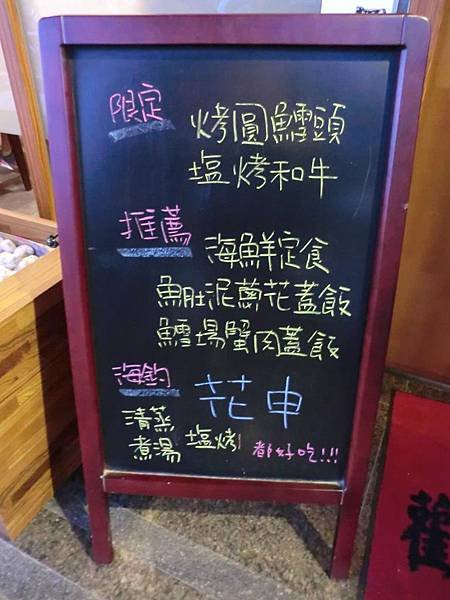 限定 烤圓鱈頭
塩烤和牛
推薦 海鮮定食
魚肚泥蔥花蓋飯
鱈場蟹肉蓋飯
海釣 花申
清蒸
煮湯 塩烤 都好吃!!!
歡